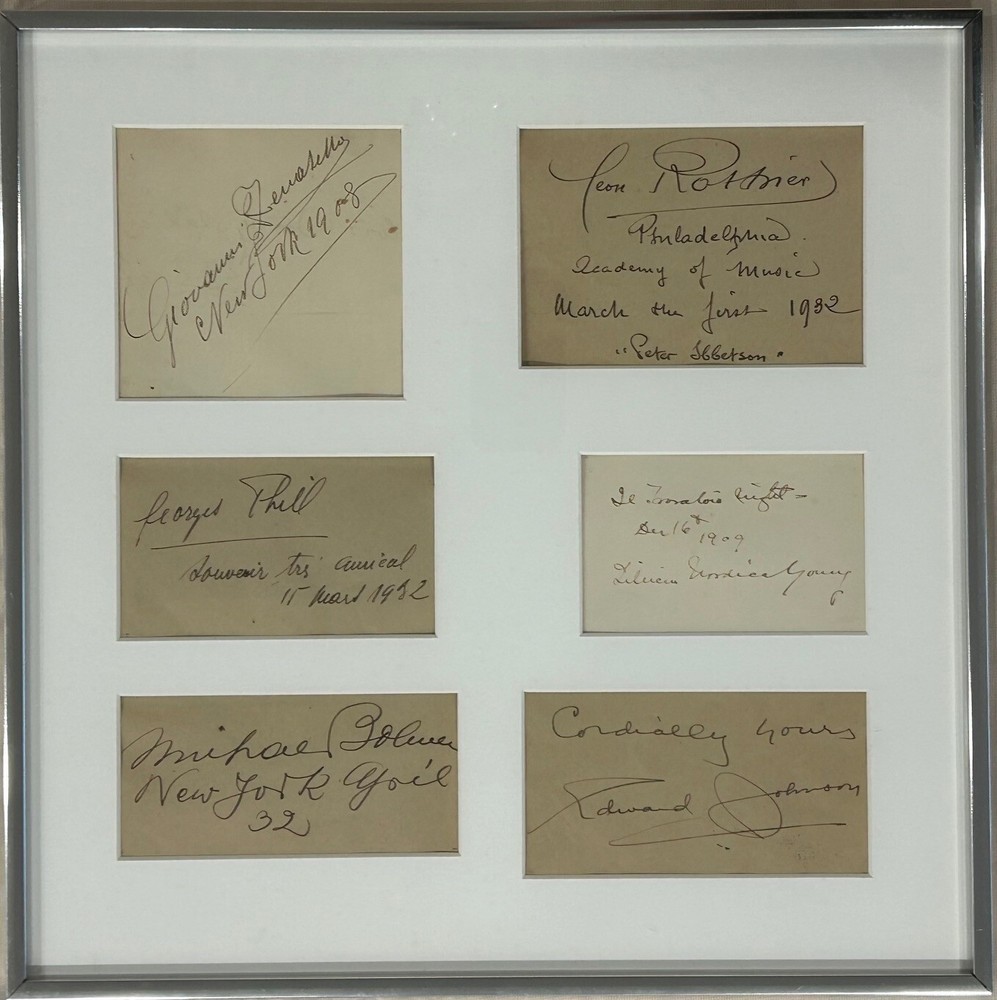 Giovanni Zenatello
New York 1908
Léon Rothier
Philadelphia.
Academy of Music
March the first 1932
"Peter Ibbetson".
Georges Thill
Souvenir très amical
15 Mars 1932
Il Trovatore night =
Dec 16th 1909
Lillian Nordica Young
Michael Bohnen
New York April
32
Cordially yours
Edward Johnson